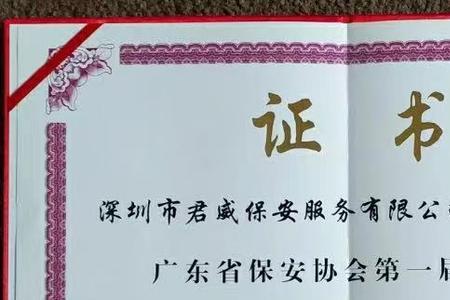 证书
深圳市君威保安服务有限公
广东省保安协会第一届